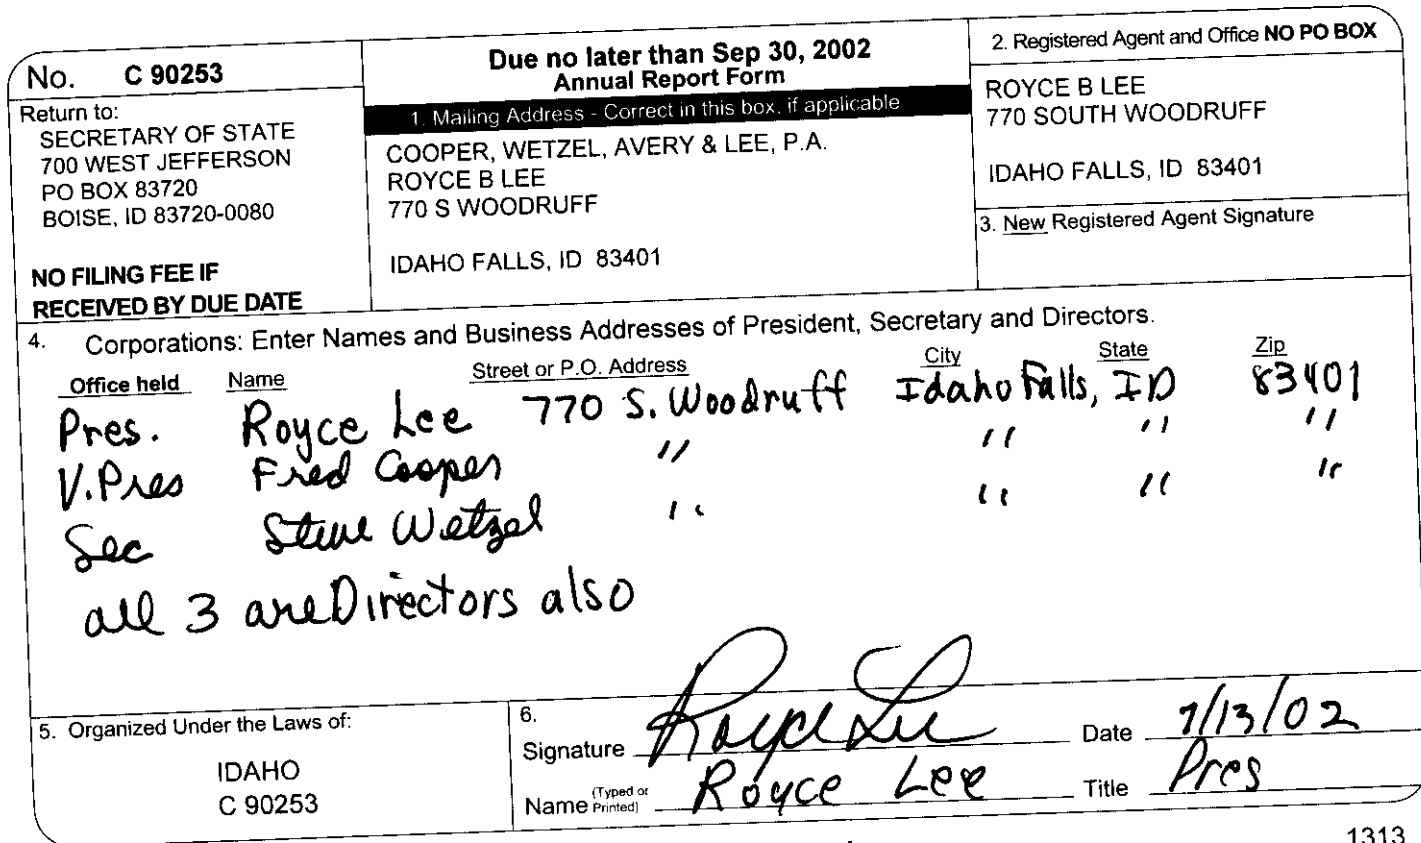 No. C 90253
Return to:
SECRETARY OF STATE
700 WEST JEFFERSON
PO BOX 83720
BOISE, ID 83720-0080
NO FILING FEE IF
RECEIVED BY DUE DATE
Due no later than Sep 30, 2002
Annual Report Form
1. Mailing Address - Correct in this box, if applicable
COOPER, WETZEL, AVERY & LEE, P.A.
ROYCE B LEE
770 S WOODRUFF
IDAHO FALLS, ID 83401
2. Registered Agent and Office NO PO BOX
ROYCE B LEE
770 SOUTH WOODRUFF
IDAHO FALLS, ID 83401
3. New Registered Agent Signature
4. Corporations: Enter Names and Business Addresses of President, Secretary and Directors.
Office held Name Street or P.O. Address City State Zip
Pres. Royce Lee 770 S. Woodruff Idaho Falls, ID 83401
V. Pres Fred Cooper " " " "
Sec Steve Wetzel " " " "
all 3 are Directors also
5. Organized Under the Laws of:
IDAHO
C 90253
6.
Signature Royce Lee Date 7/13/02
Name (Typed or Printed) Royce Lee Title Pres
1313